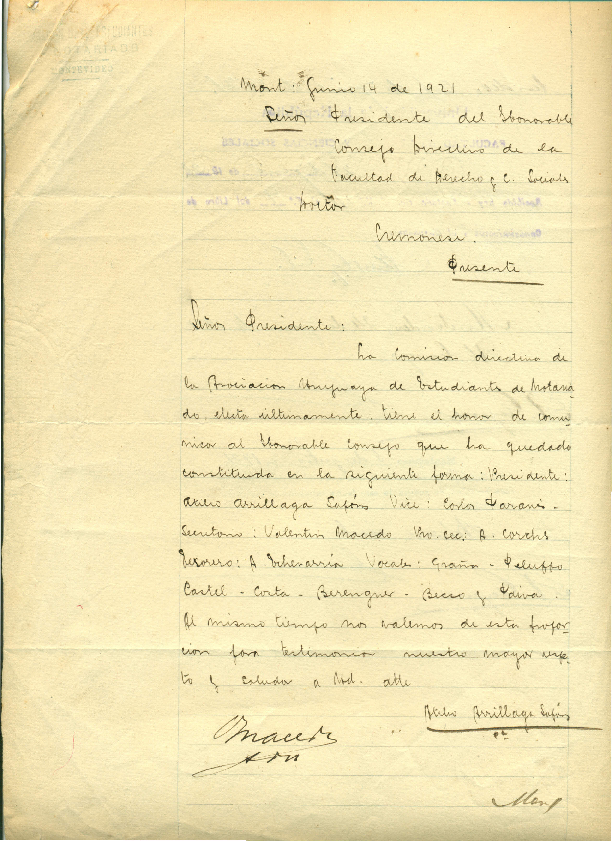 Mont: Junio 14 de 1921
Señor Presidente del Honorable
Consejo Directivo de la
Facultad de Derecho y C. Sociales
Doctor
Cremonesi.
Presente
Señor Presidente:
La Comision directiva de
la Asociacion Uruguaya de Estudiantes de Notaria
do, electa últimamente, tiene el honor de comu-
nicar al Honorable Consejo que ha quedado
constituida en la siguiente forma: Presidente:
Atilio Arrillaga Safóns Vice: Carlos
Secretario: Valentin Macedo Pro. Sec: A. Corchs
Tesorero: A Echevarría Vocales: Graña - Peluffo
Castel - Costa - Berenguer - Besso y
Al mismo tiempo nos valemos de esta propor-
cion para testimoniar nuestro mayor respe-
to y saludar a Ud. atte
Atilio Arrillaga Safóns
Macedo